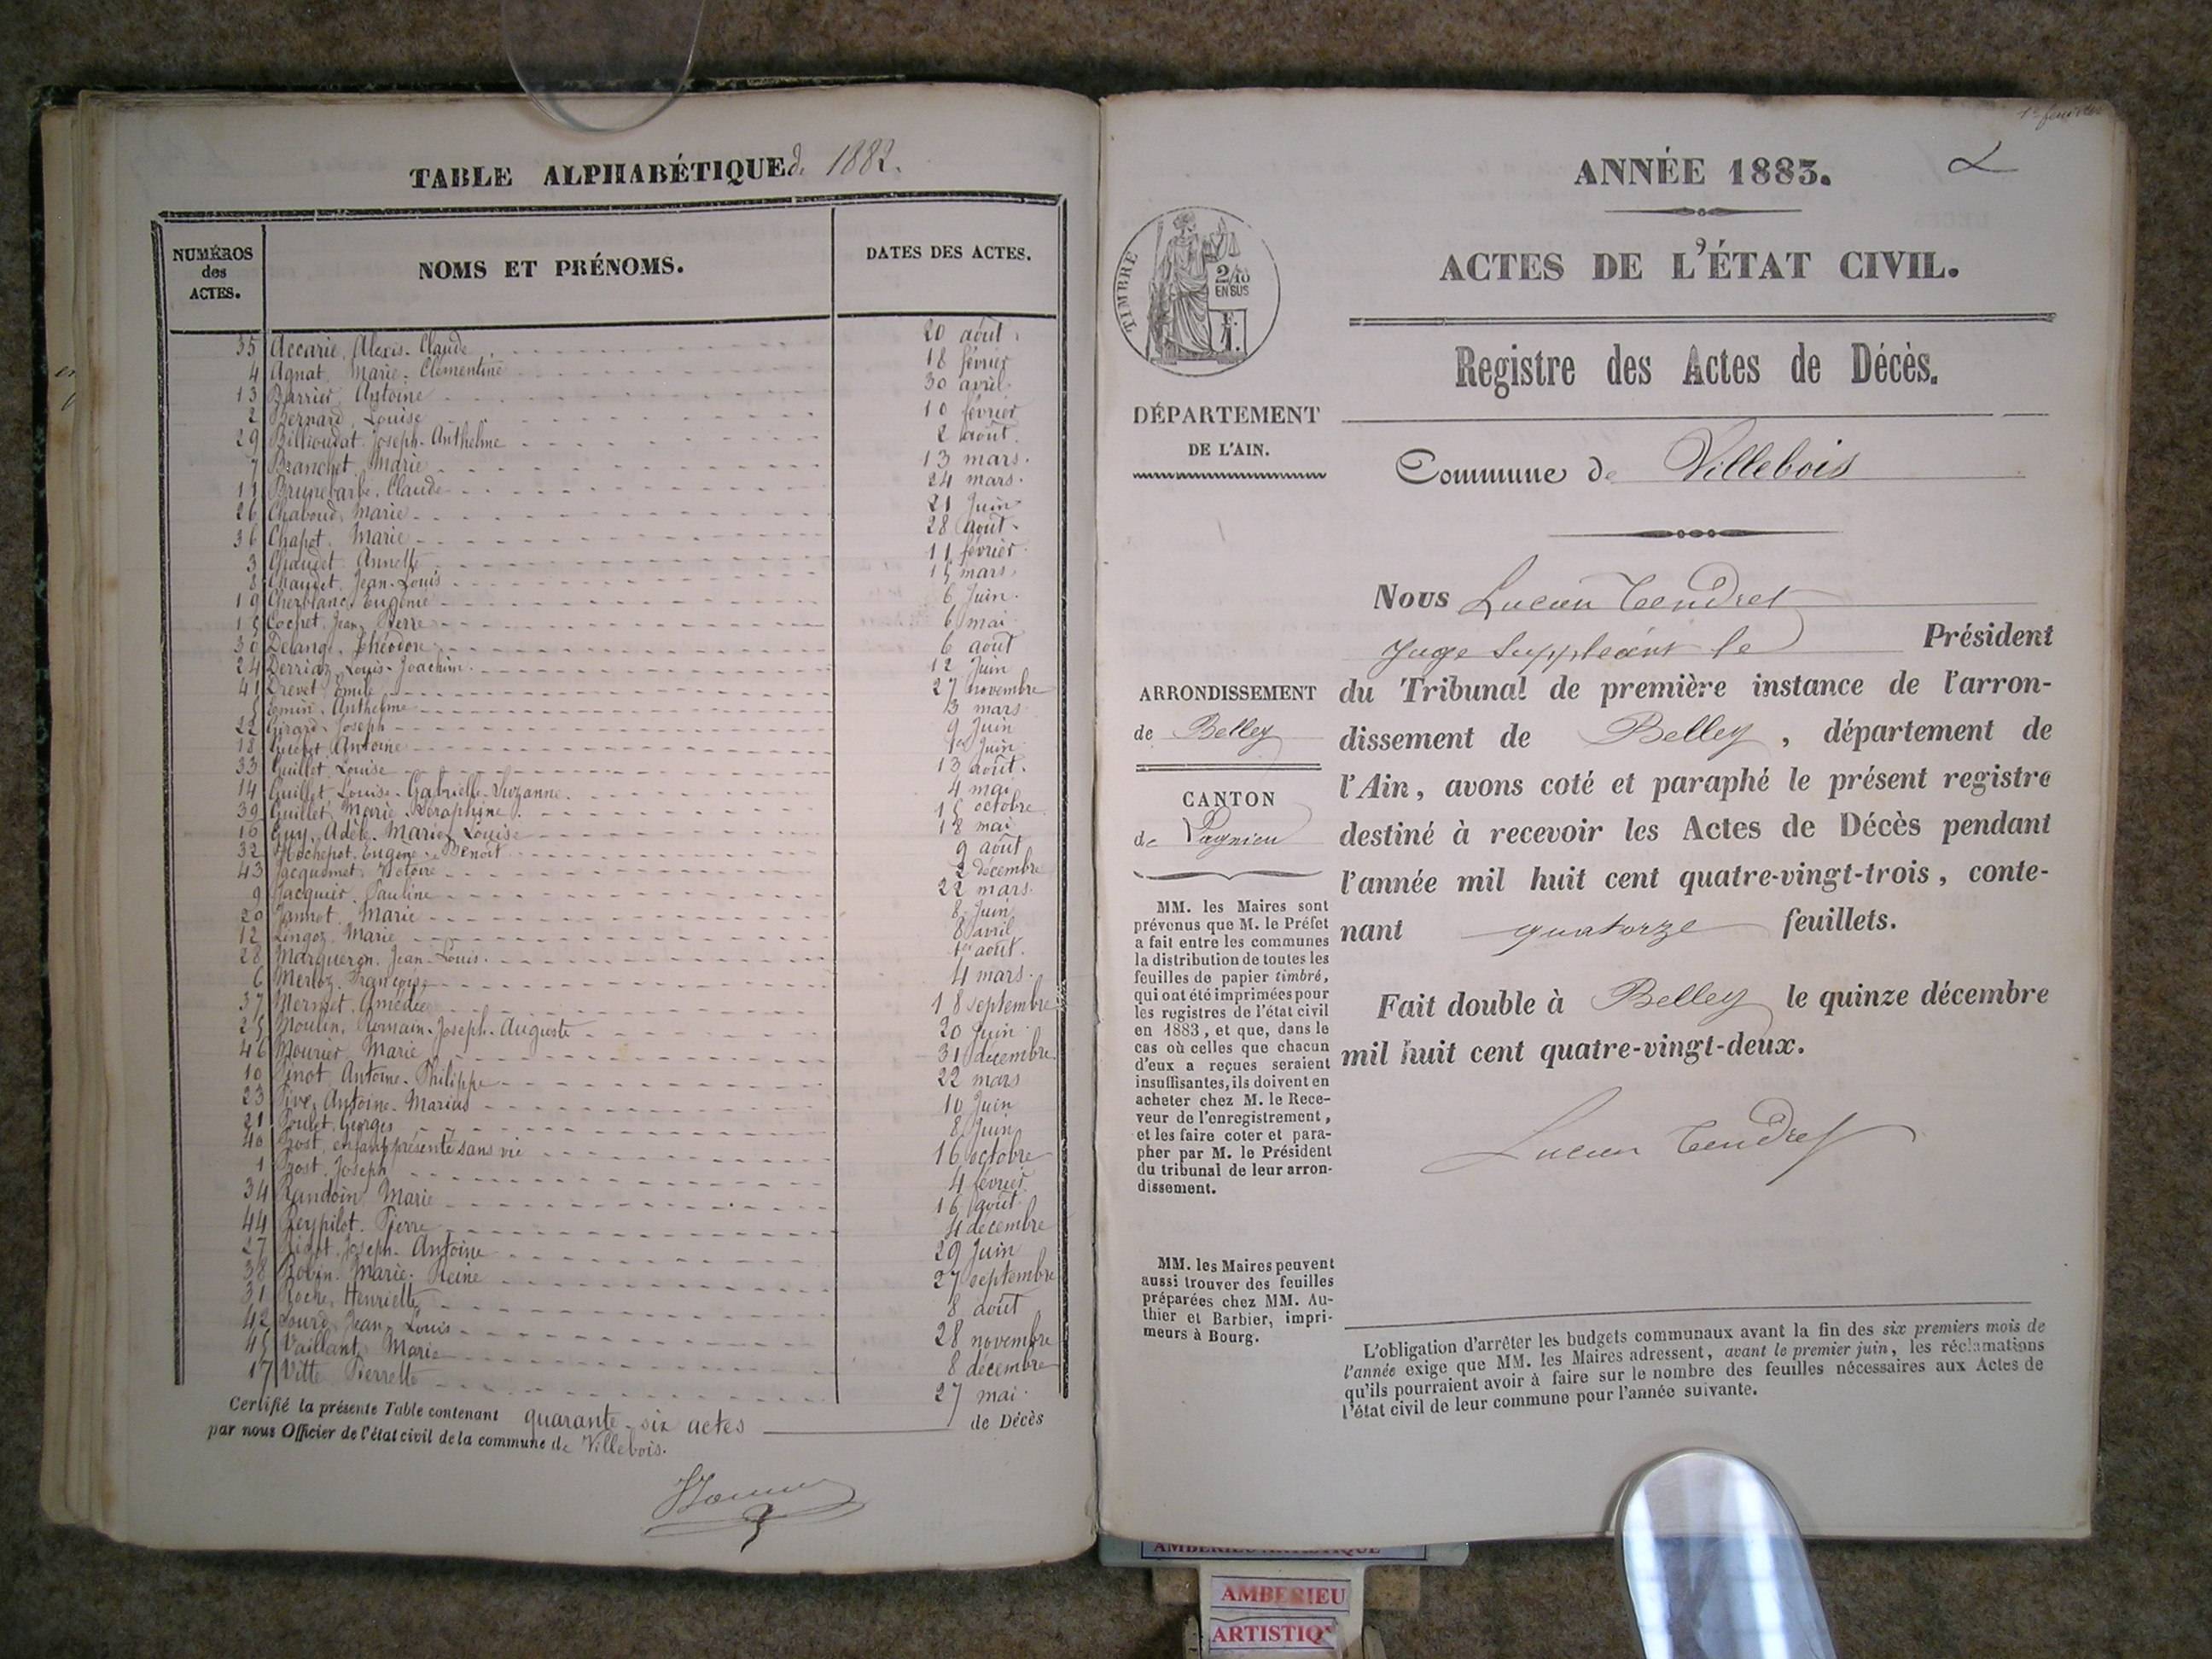 TABLE ALPHABÉTIQUE de 1882.
NUMÉROS des ACTES.
NOMS ET PRÉNOMS.
DATES DES ACTES.
35 Accarie, Alexis-Claude 20 août
4 Agnat, Marie-Clémentine 18 février
13 Barrier, Antoine 30 avril
2 Bernard, Louise 10 février
29 Billioudat, Joseph-Anthelme 2 août
7 Branchet, Marie 13 mars
11 Brunebarbe, Claude 24 mars
26 Chaboud, Marie 21 Juin
36 Chapot, Marie 28 août
3 Chaudet, Annette 11 février
8 Chaudet, Jean-Louis 15 mars
19 Cherblanc, Eugénie 6 Juin
15 Cochet, Jean-Pierre 6 mai
30 Delange, Théodore 6 août
24 Derriaz, Louis-Joachim 12 Juin
41 Drevet, Emile 27 novembre
5 Emin, Anthelme 3 mars
22 Girard, Joseph 9 Juin
18 Antoine 1er Juin
33 Guillet, Louise 13 août
14 Guillet, Louise-Gabrielle-Suzanne 4 mai
39 Guillet, Marie-Séraphine 15 octobre
16 Guy, Adèle-Marie-Louise 18 mai
32 Hochepot, Eugène-Benoît 9 août
43 Jacquemet, Victoire 2 décembre
9 Jacquier, Pauline 22 mars
20 Jannot, Marie 8 Juin
12 Lingoz, Marie 8 avril
28 Marqueron, Jean-Louis 1er août
6 Merloz, François 4 mars
37 Mermet, Amédée 18 septembre
25 Moulin, Romain-Joseph-Auguste 20 Juin
46 Mourier, Marie 31 décembre
10 Pinot, Antoine-Philippe 22 mars
23 Pive, Antoine-Marius 10 Juin
21 Poulet, Georges 8 Juin
40 Prost, enfant présenté sans vie 16 octobre
1 Prost, Joseph 4 février
34 Randoin, Marie 16 août
44 Reypilot, Pierre 4 décembre
27 Joseph-Antoine 29 Juin
38 Robin, Marie-Reine 27 septembre
31 Roche, Henriette 8 août
42 Sourd, Jean-Louis 28 novembre
45 Vaillant, Marie 8 décembre
17 Vitte, Pierrette 27 mai
Certifié la présente Table contenant quarante-six actes de Décès
par nous Officier de l'état civil de la commune de Villebois.
1er feuillet
ANNÉE 1883.
ACTES DE L'ÉTAT CIVIL.
TIMBRE
2/10
EN SUS
Registre des Actes de Décès.
DÉPARTEMENT
DE L'AIN.
Commune de Villebois
Nous Lucien Tendret
Juge Suppléant le Président
du Tribunal de première instance de l'arron-
dissement de Belley, département de
l'Ain, avons coté et paraphé le présent registre
destiné à recevoir les Actes de Décès pendant
l'année mil huit cent quatre-vingt-trois, conte-
nant quatorze feuillets.
Fait double à Belley le quinze décembre
mil huit cent quatre-vingt-deux.
Lucien Tendret
ARRONDISSEMENT
de Belley
CANTON
de Lagnieu
MM. les Maires sont
prévenus que M. le Préfet
a fait entre les communes
la distribution de toutes les
feuilles de papier timbré,
qui ont été imprimées pour
les registres de l'état civil
en 1883, et que, dans le
cas où celles que chacun
d'eux a reçues seraient
insuffisantes, ils doivent en
acheter chez M. le Rece-
veur de l'enregistrement,
et les faire coter et para-
pher par M. le Président
du tribunal de leur arron-
dissement.
MM. les Maires peuvent
aussi trouver des feuilles
préparées chez MM. Au-
thier et Barbier, impri-
meurs à Bourg.
L'obligation d'arrêter les budgets communaux avant la fin des six premiers mois de
l'année exige que MM. les Maires adressent, avant le premier juin, les réclamations
qu'ils pourraient avoir à faire sur le nombre des feuilles nécessaires aux Actes de
l'état civil de leur commune pour l'année suivante.
AMBERIEU ARTISTIQUE
AMBERIEU
ARTISTIQ